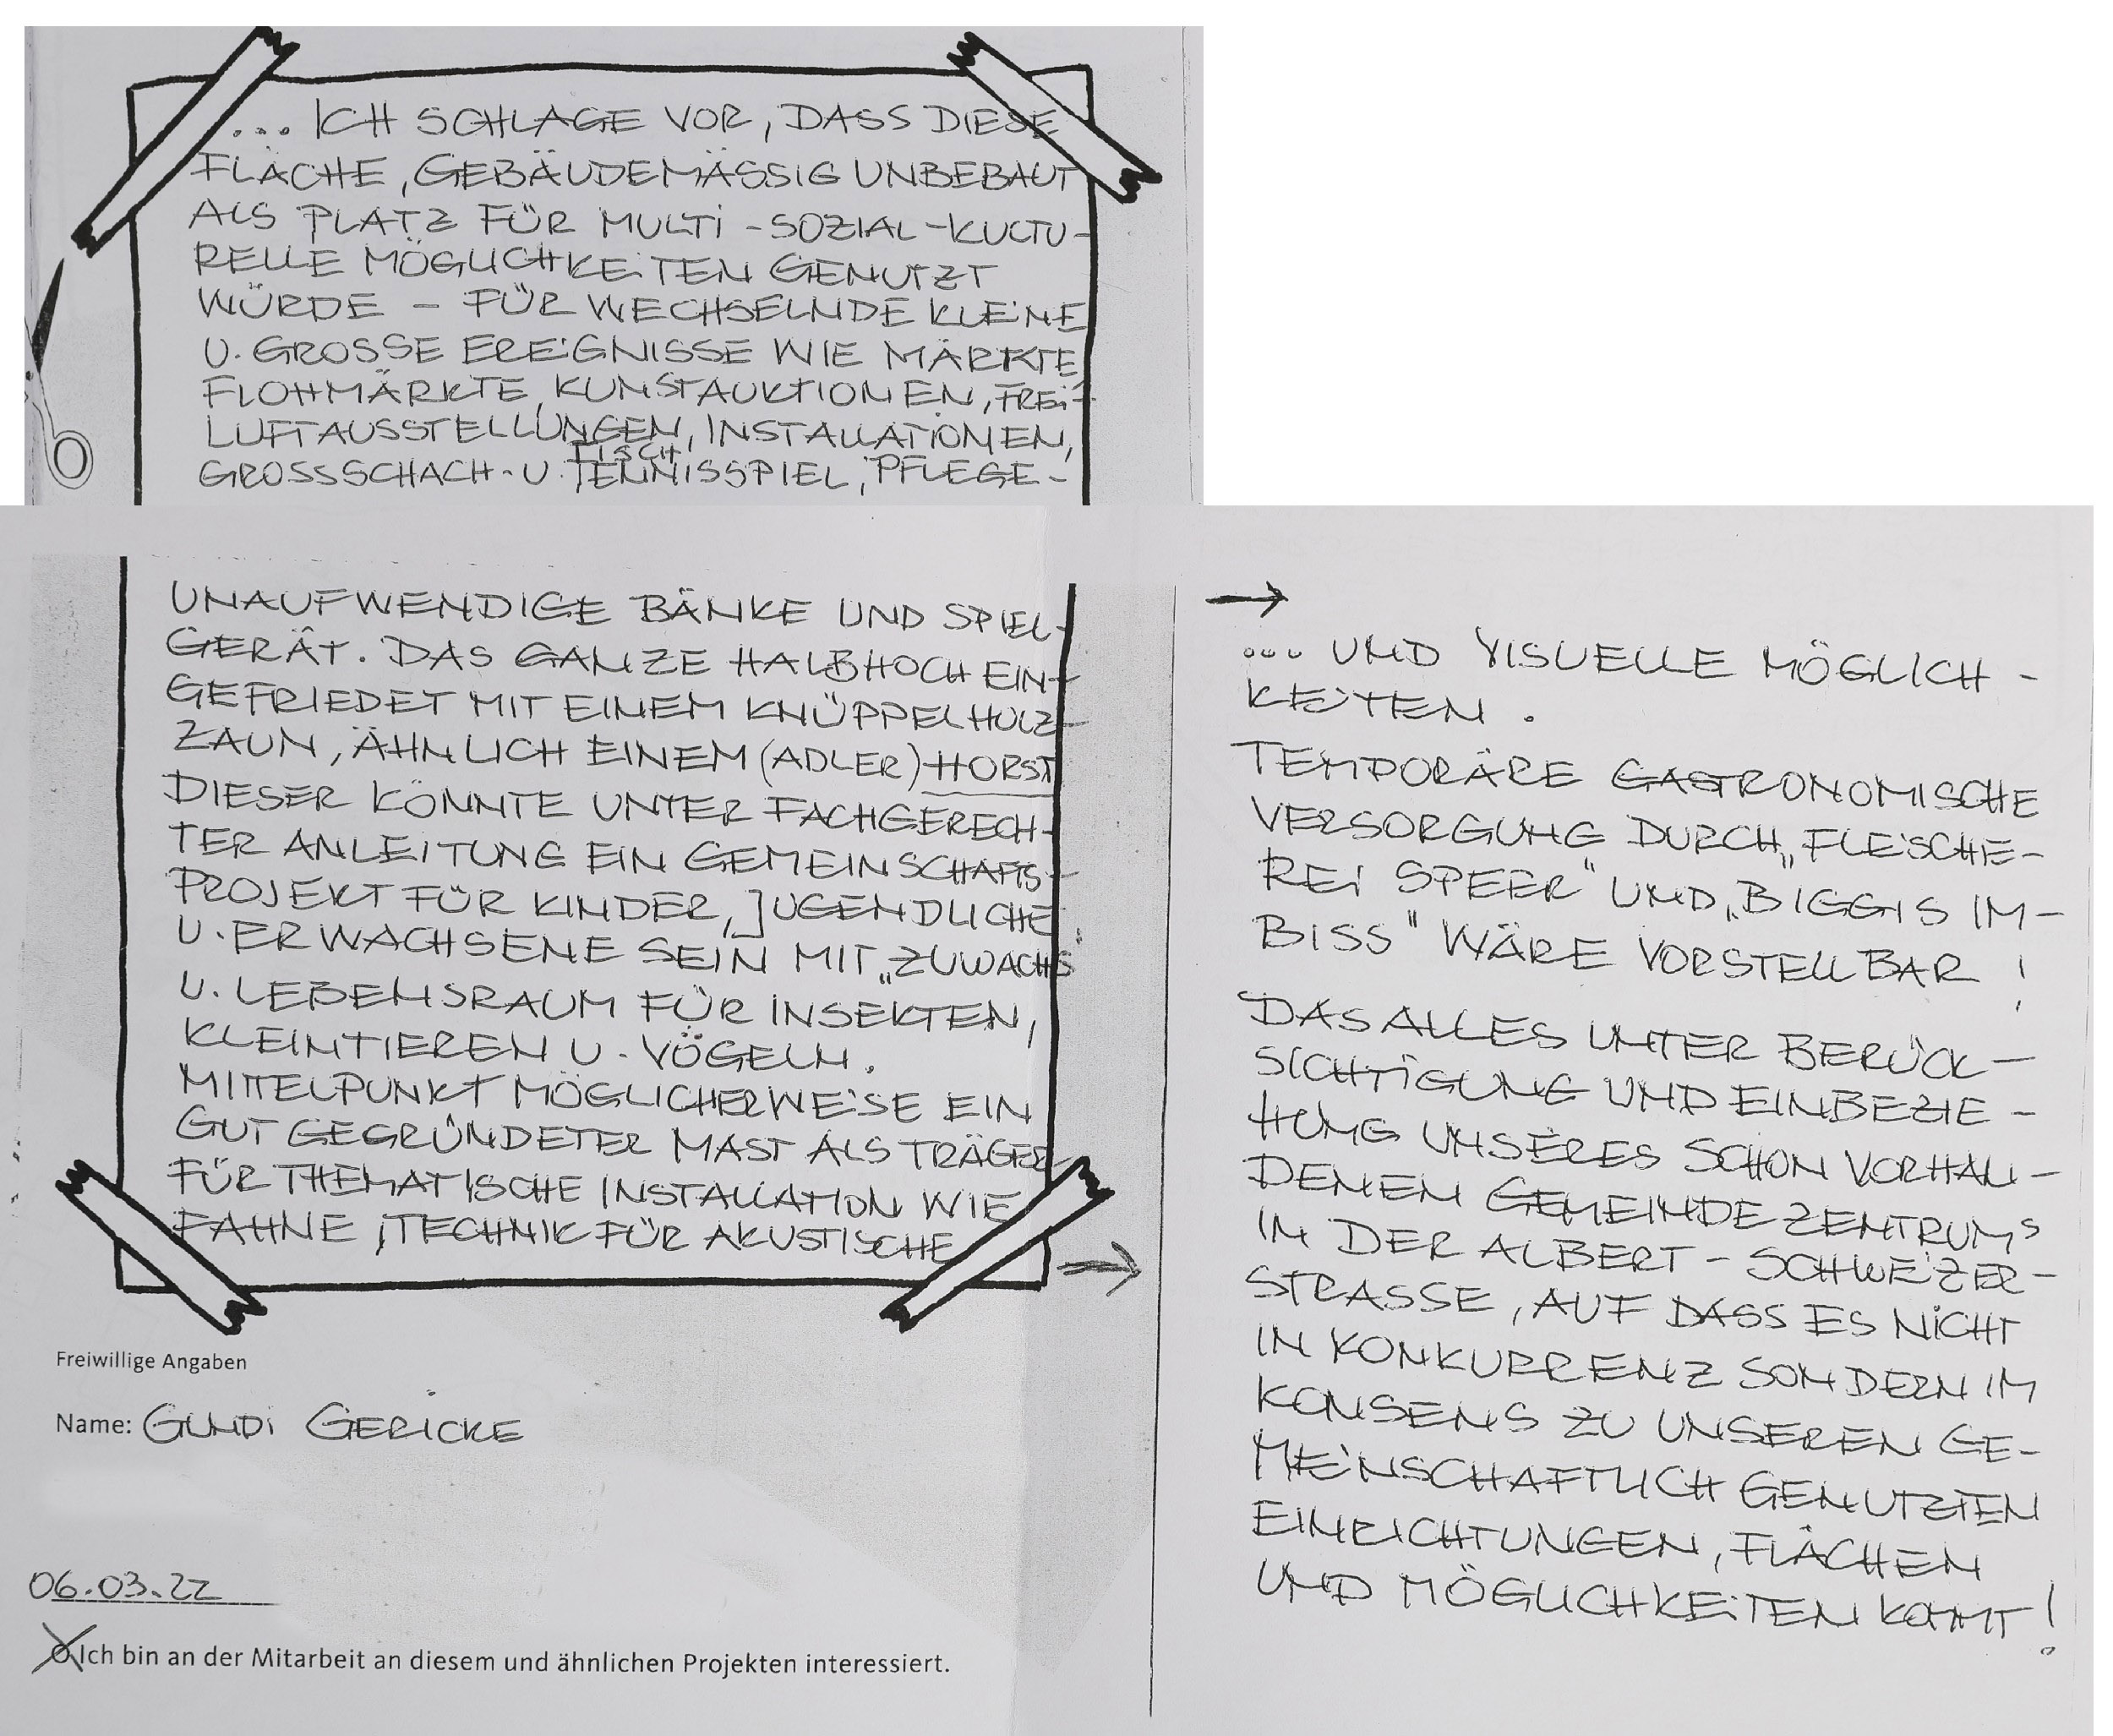 ... ICH SCHLAGE VOR, DASS DIESE
FLÄCHE, GEBÄUDEMÄSSIG UNBEBAUT
ALS PLATZ FÜR MULTI-SOZIAL-KULTU-
RELLE MÖGLICHKEITEN GENUTZT
WÜRDE - FÜR WECHSELNDE KLEINE
U. GROSSE EREIGNISSE WIE MÄRKTE
FLOHMÄRKTE, KUNSTAUKTIONEN, FREI-
LUFTAUSSTELLUNGEN, INSTALLATIONEN,
GROSSSCHACH- U. TISCHTENNISSPIEL, PFLEGE-
UNAUFWENDIGE BÄNKE UND SPIEL-
GERÄT. DAS GANZE HALBHOCH EIN-
GEFRIEDET MIT EINEM KNÜPPELHOLZ-
ZAUN, ÄHNLICH EINEM (ADLER)HORST
DIESER KÖNNTE UNTER FACHGERECH-
TER ANLEITUNG EIN GEMEINSCHAFTS-
PROJEKT FÜR KINDER, JUGENDLICHE
U. ERWACHSENE SEIN MIT „ZUWACHS"
U. LEBENSRAUM FÜR INSEKTEN,
KLEINTIEREN U. VÖGELN.
MITTELPUNKT MÖGLICHERWEISE EIN
GUT GEGRÜNDETER MAST ALS TRÄGER
FÜR THEMATISCHE INSTALLATION WIE
FAHNE, TECHNIK FÜR AKUSTISCHE
→
Freiwillige Angaben
Name: GUNDI GERICKE
06.03.22
Ich bin an der Mitarbeit an diesem und ähnlichen Projekten interessiert.
→
... UND VISUELLE MÖGLICH-
KEITEN.
TEMPORÄRE GASTRONOMISCHE
VERSORGUNG DURCH „FLEISCHE-
REI SPEER" UND „BIGGIS IM-
BISS" WÄRE VORSTELLBAR!
DAS ALLES UNTER BERÜCK-
SICHTIGUNG UND EINBEZIE-
HUNG UNSERES SCHON VORHAN-
DENEN GEMEINDEZENTRUMS
IN DER ALBERT-SCHWEIZER-
STRASSE, AUF DASS ES NICHT
IN KONKURRENZ SONDERN IM
KONSENS ZU UNSEREN GE-
MEINSCHAFTLICH GENUTZTEN
EINRICHTUNGEN, FLÄCHEN
UND MÖGLICHKEITEN KOMMT!